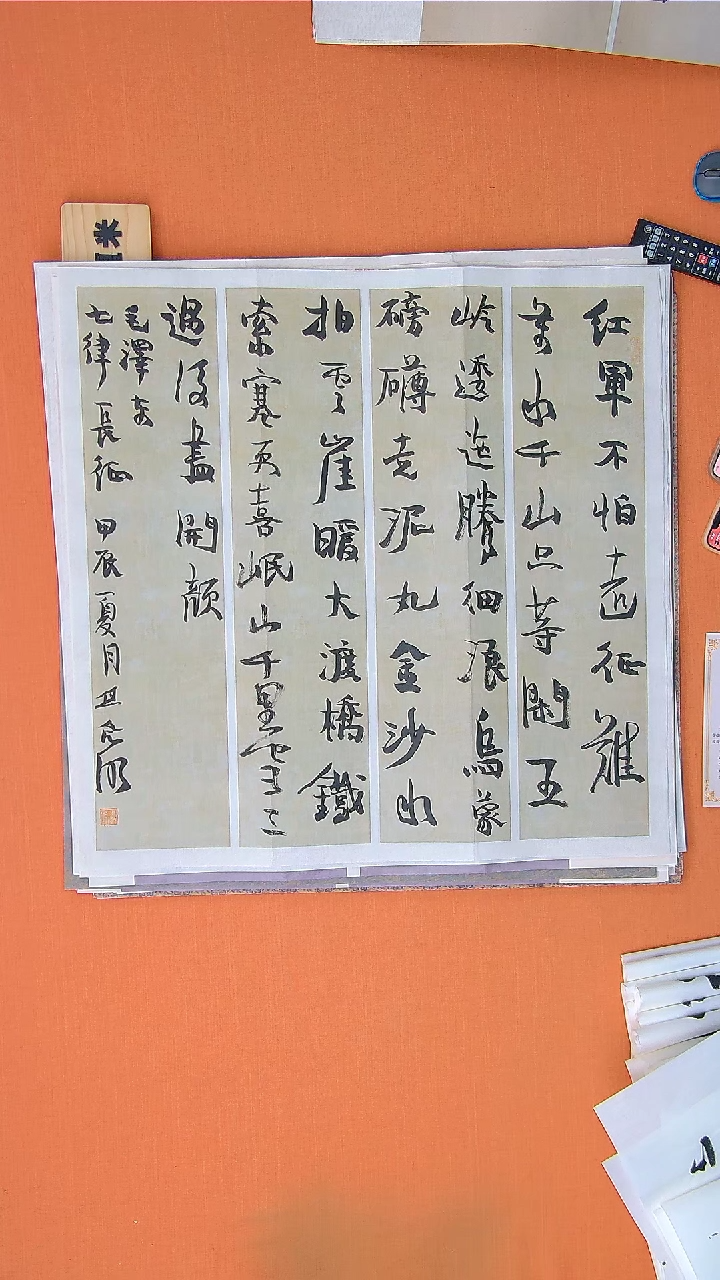 紅軍不怕遠征難
萬水千山只等閑五
嶺逶迤騰細浪烏蒙
磅礴走泥丸金沙水
拍雲崖暖大渡橋鐵
索寒更喜岷山千里雪三
過後盡開顏
毛澤東
七律長征 甲辰夏月
米